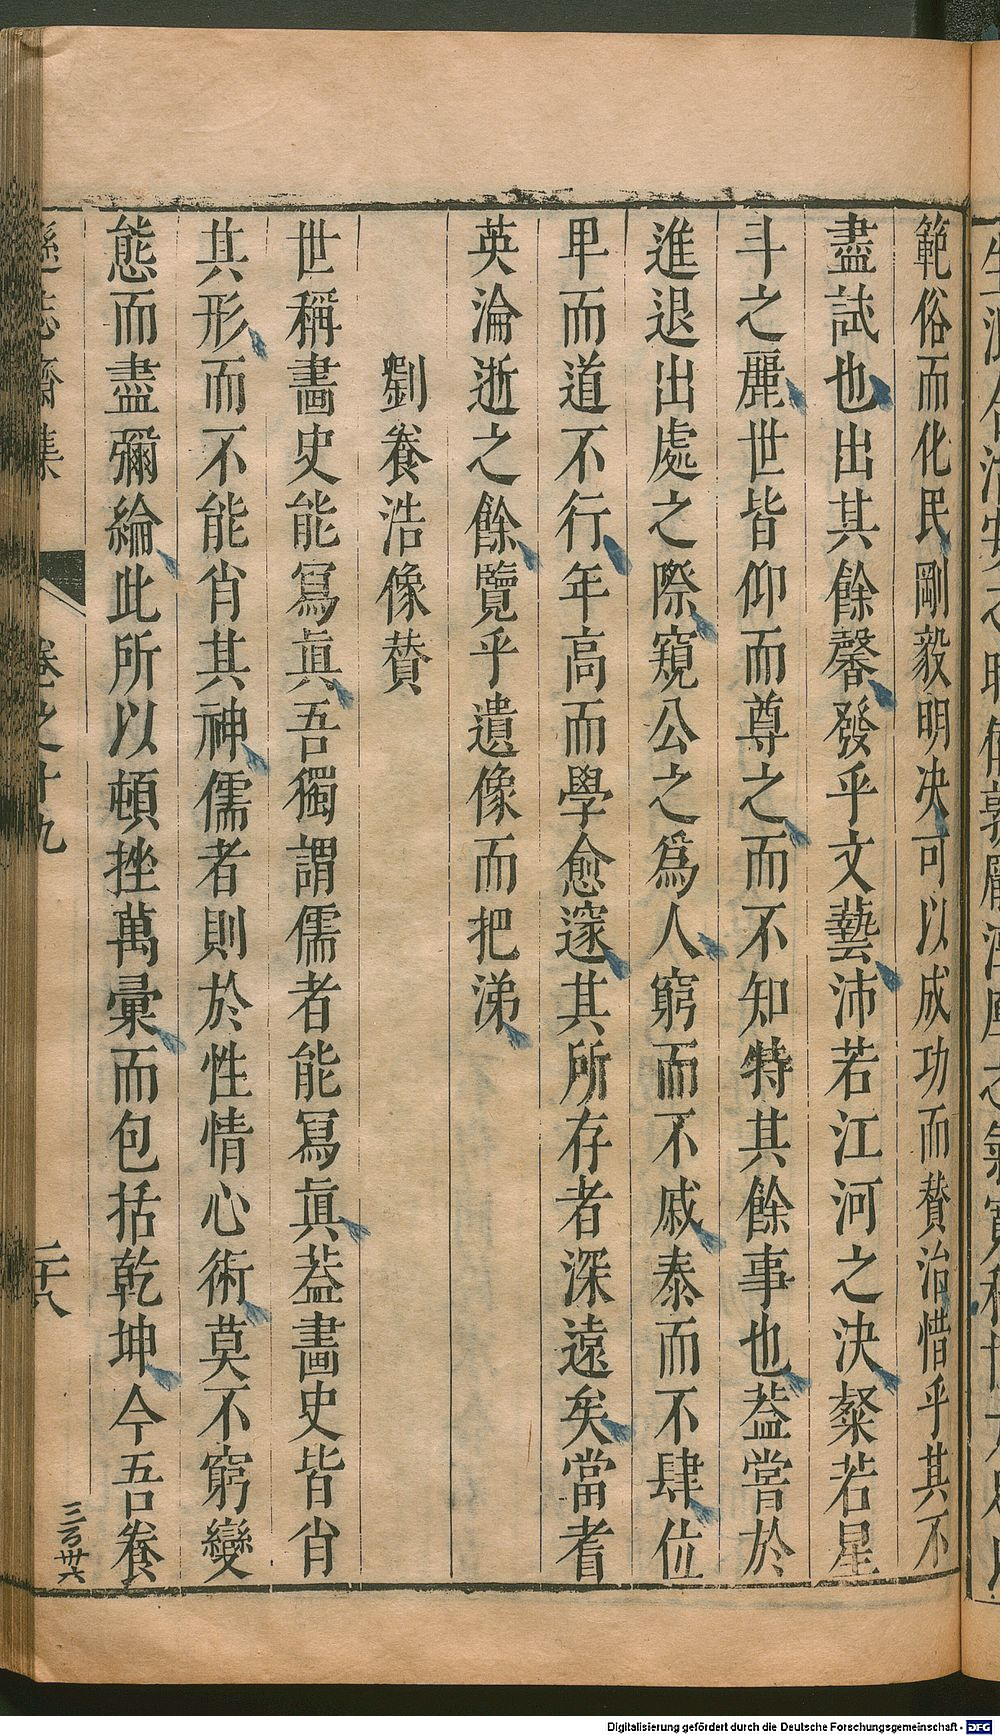 範俗而化民剛毅明决可以成功而賛治惜乎其不
盡試也出其餘馨發乎文藝沛若江河之决粲若星
斗之麗世皆仰而尊之而不知特其餘事也葢嘗於
進退出處之際窺公之爲人窮而不戚泰而不肆位
卑而道不行年高而學愈邃其所存者深遠矣當耆
英淪逝之餘覽乎遺像而把涕
劉養浩像賛
世稱畵史能寫眞吾獨謂儒者能寫眞葢畵史皆肖
其形而不能肖其神儒者則於性情心術莫不窮變
態而盡彌綸此所以頓挫萬彚而包括乾坤今吾養
遜志齋集
卷之十九
二十八
三百卅六
Digitalisierung gefördert durch die Deutsche Forschungsgemeinschaft - DFG